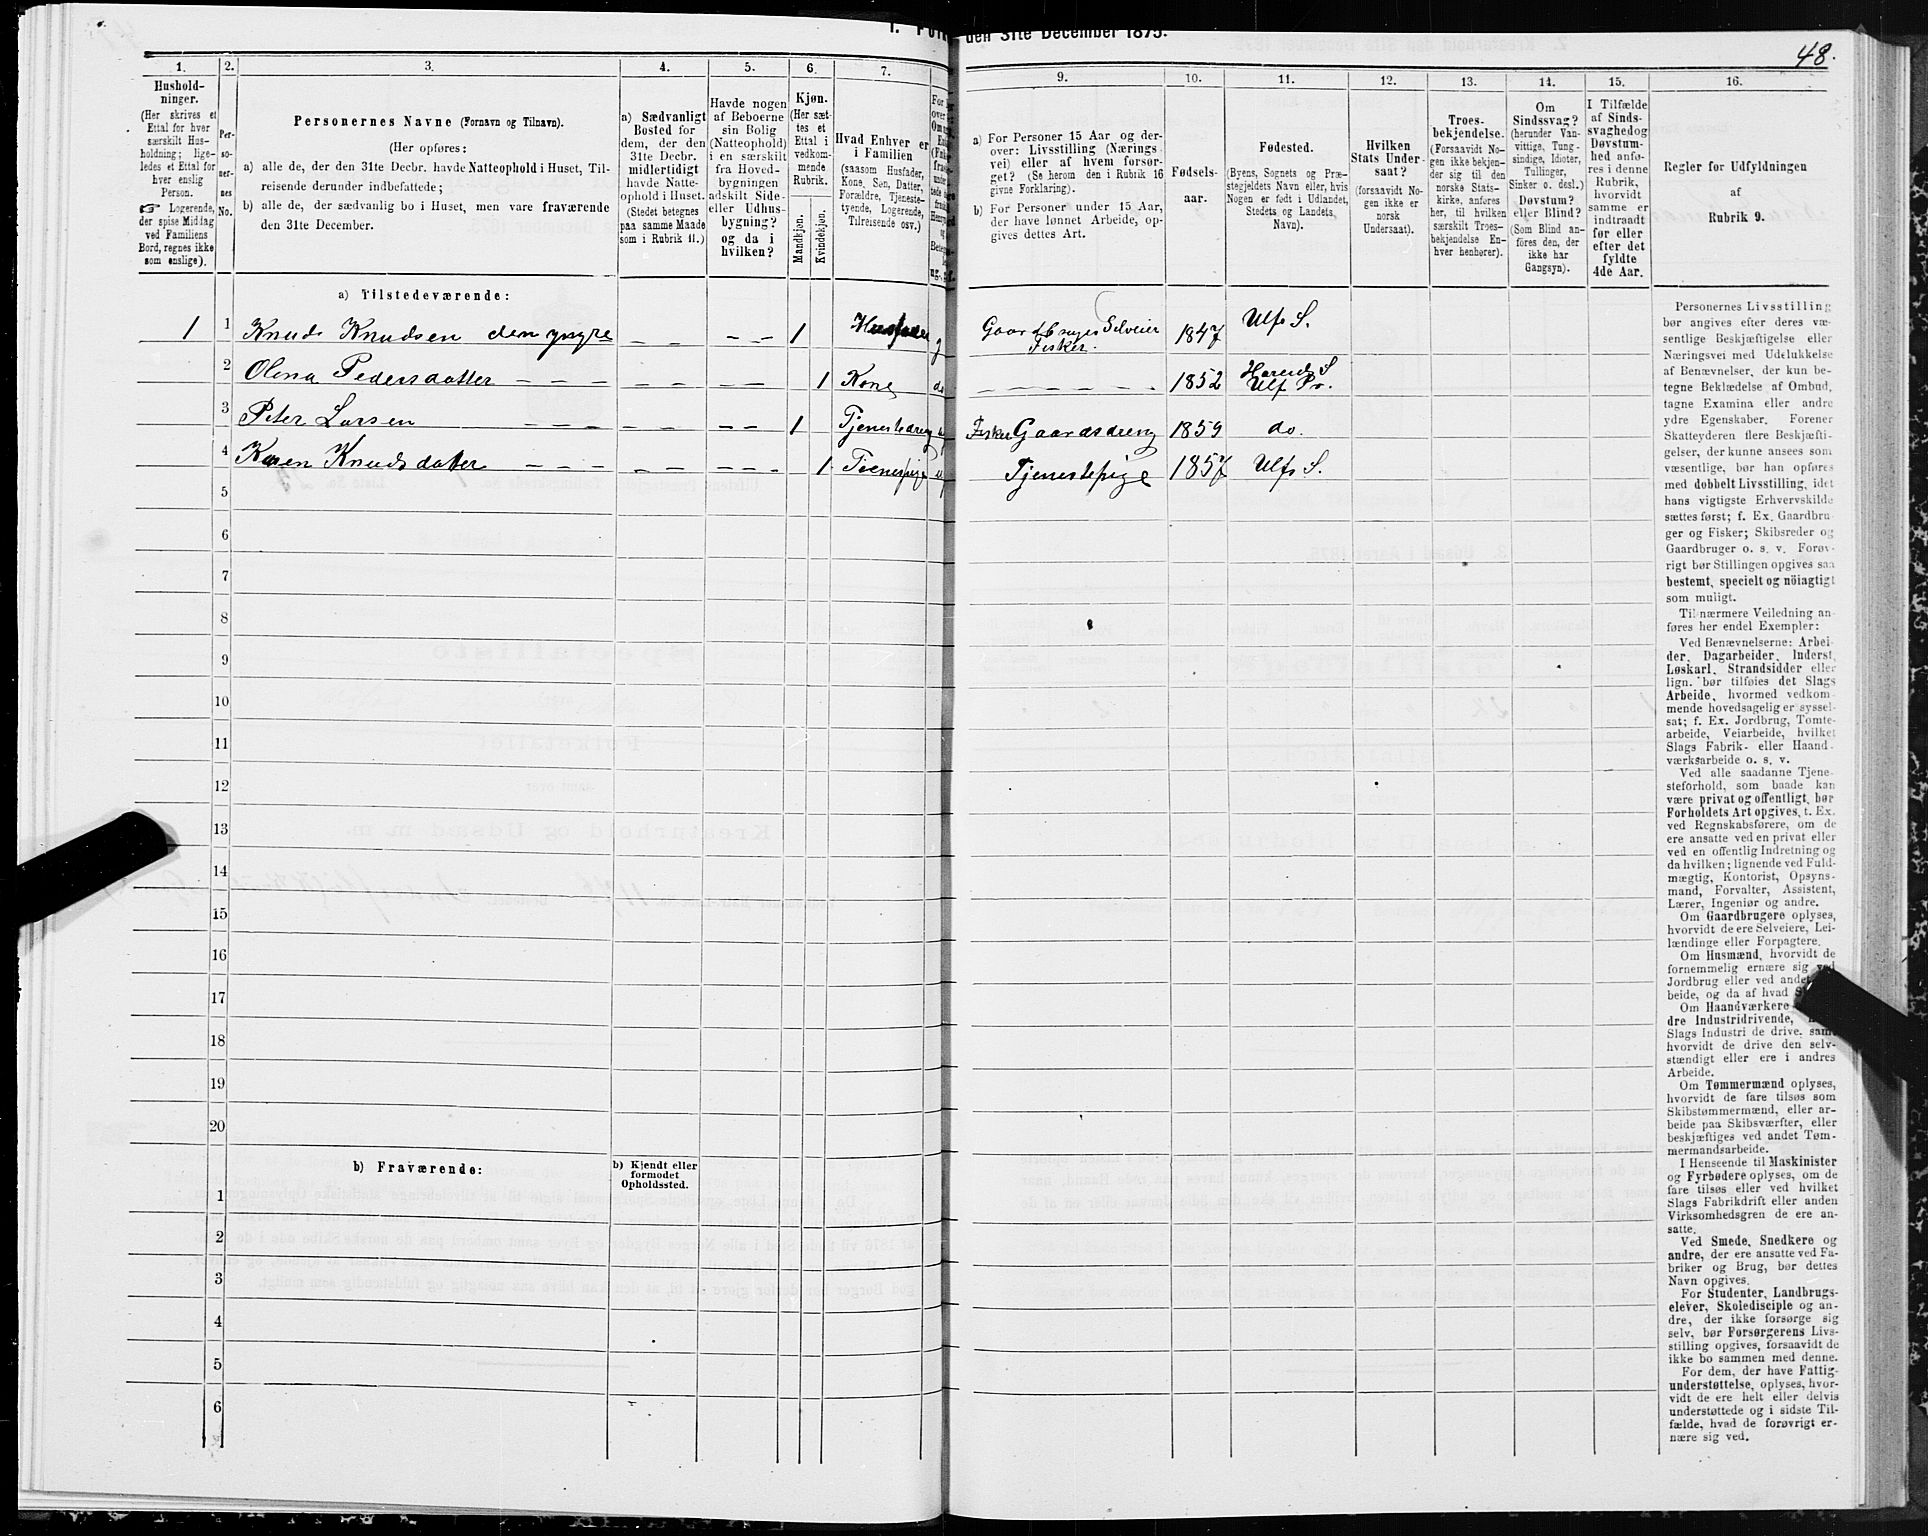 den 31te December 1875.
48.
1.
Hushold-
ninger.
(Her skrives et
Ettal for hver
særskilt Hus-
holdning; lige-
ledes et Ettal for
hver enslig
Person.
☞ Logerende,
der spise Middag
ved Familiens
Bord, regnes ikke
som enslige).
2.
Per-
so-
ner-
nes
No.
3.
Personernes Navne (Fornavn og Tilnavn).
(Her opføres:
a) alle de, der den 31te Decbr. havde Natteophold i Huset, Til-
reisende derunder indbefattede;
b) alle de, der sædvanlig bo i Huset, men vare fraværende
den 31te December.
4.
a) Sædvanligt
Bosted for
dem, der den
31te Decbr.
midlertidigt
havde Natte-
ophold i Huset.
(Stedet betegnes
paa samme Maade
som i Rubrik 11.)
5.
Havde nogen
af Beboerne
sin Bolig
(Natteophold)
i en særskilt
fra Hoved-
bygningen
adskilt Side-
eller Udhus-
bygning?
og da i
hvilken?
6.
Kjøn.
(Her sæt-
tes et
Ettal i
vedkom-
mende
Rubrik.
Mandkjøn.
Kvindekjøn.
7.
Hvad Enhver er
i Familien
(saasom Husfader,
Kone, Søn, Datter,
Forældre, Tjeneste-
tyende, Logerende,
Tilreisende osv.)
9.
a) For Personer 15 Aar og der-
over: Livsstilling (Nærings-
vei) eller af hvem forsør-
get? (Se herom den i Rubrik 16
givne Forklaring).
b) For Personer under 15 Aar,
der have lønnet Arbeide, op-
gives dettes Art.
10.
Fødsels-
aar.
11.
Fødested.
(Byens, Sognets og Præ-
stegjeldets Navn eller, hvis
Nogen er født i Udlandet,
Stedets og Landets,
Navn).
12.
Hvilken
Stats Under-
saat?
(forsaavidt No-
gen ikke er
norsk
Undersaat).
13.
Troes-
bekjendelse.
(Forsaavidt No-
gen ikke bekjen-
der sig til den
norske Stats-
kirke, anføres
her, til hvilken
særskilt Troes-
bekjendelse En-
hver henhører).
14.
Om
Sindssvag?
(herunder Van-
vittige, Tung-
sindige, Idioter,
Tullinger,
Sinker o. desl.)
Døvstum?
eller Blind?
(Som Blind an-
føres den, der
ikke har
Gangsyn).
15.
I Tilfælde
af Sinds-
svaghed og
Døvstum-
hed anfø-
res i denne
Rubrik,
hvorvidt
samme er
indtraadt
før eller
efter det
fyldte
4de Aar.
16.
Regler for Udfyldningen
af
Rubrik 9.
a) Tilstedeværende:
1 1 Knud Knudsen den yngre 1 Husfader g Gaardbruger Selveier Fisker. 1847 Ulfs S.
2 Olena Pedersdatter 1 Kone 1852 Ulf Pr.
3 Peter Larsen 1 Tjenestedreng Fisker Gaardsdreng 1859 do.
4 Karen Knudsdatter 1 Tjenestepige 1857 Ulfs S.
5
6
7
8
9
10
11
12
13
14
15
16
17
18
19
20
b) Fraværende:
b) Kjendt eller
formodet
Opholdssted.
1
2
3
4
5
6
Personernes Livsstilling
bør angives efter deres væ-
sentlige Beskjæftigelse eller
Næringsvei med Udelukkelse
af Benævnelser, der kun be-
tegne Beklædelse af Ombud,
tagne Examina eller andre
ydre Egenskaber. Forener
Skatteyderen flere Beskjæfti-
gelser, der kunne ansees som
væsentlige, bør han opføres
med dobbelt Livsstilling, idet
hans vigtigste Erhvervskilde
sættes først; f. Ex. Gaardbru-
ger og Fisker; Skibsreder og
Gaardbruger o. s. v. Forøv-
rigt bør Stillingen opgives saa
bestemt, specielt og nöiagtigt
som muligt.
Til nærmere Veiledning an-
føres her endel Exempler:
Ved Benævnelserne: Arbei-
der, Dagarbeider, Inderst,
Løskarl, Strandsidder eller
lign. bør tilføies det Slags
Arbeide, hvormed vedkom-
mende hovedsagelig er syssel-
sat; f. Ex. Jordbrug, Tomte-
arbeide, Veiarbeide, hvilket
Slags Fabrik- eller Haand-
værksarbeide o. s. v.
Ved alle saadanne Tjene-
steforhold, som baade kan
være privat og offentligt, bør
Forholdets Art opgives, t. Ex.
ved Regnskabsførere, om de
ere ansatte ved en privat eller
ved en offentlig Indretning og
da hvilken; lignende ved Fuld-
mægtig, Kontorist, Opsyns-
mand, Forvalter, Assistent,
Lærer, Ingeniør og andre.
Om Gaardbrugere oplyses,
hvorvidt de ere Selveiere, Lei-
lændinge eller Forpagtere.
Om Husmænd, hvorvidt de
fornemmelig ernære sig ved
Jordbrug eller ved andet
beide, og da af hvad
Om Haandværkere
dre Industridrivende,
Slags Industri de drive, samt
hvorvidt de drive den selv-
stændigt eller ere i andres
Arbeide.
Om Tømmermænd oplyses,
hvorvidt de fare tilsøs som
Skibstømmermænd, eller ar-
beide paa Skibsværfter, eller
beskjæftiges ved andet Tøm-
mermandsarbeide.
I Henseende til Maskinister
og Fyrbødere oplyses, om de
fare tilsøs eller ved hvilket
Slags Fabrikdrift eller anden
Virksomhedsgren de ere an-
satte.
Ved Smede, Snedkere og
andre, der ere ansatte ved Fa-
briker og Brug, bør dettes
Navn opgives.
For Studenter, Landbrugs-
elever, Skoledisciple og an-
dre, der ikke forsørge sig
selv, bør Forsørgerens Livs-
stilling opgives, forsaavidt de
ikke bo sammen med denne.
For dem, der have Fattig-
understøttelse, oplyses, hvor-
vidt de ere helt eller delvis
understøttede og i sidste Til-
fælde, hvad de forøvrigt er-
nære sig ved.